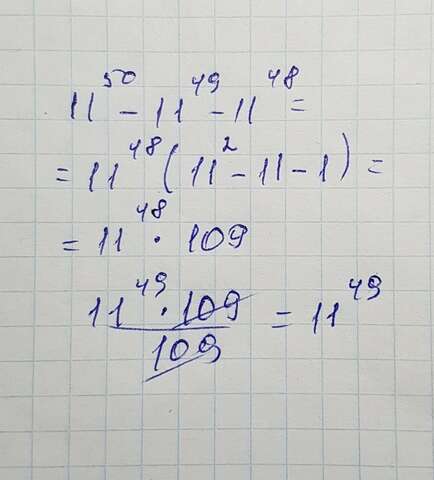 11^50 - 11^49 - 11^48 =
= 11^48 (11^2 - 11 - 1) =
= 11^48 · 109
11^49 · 109 / 109 = 11^49